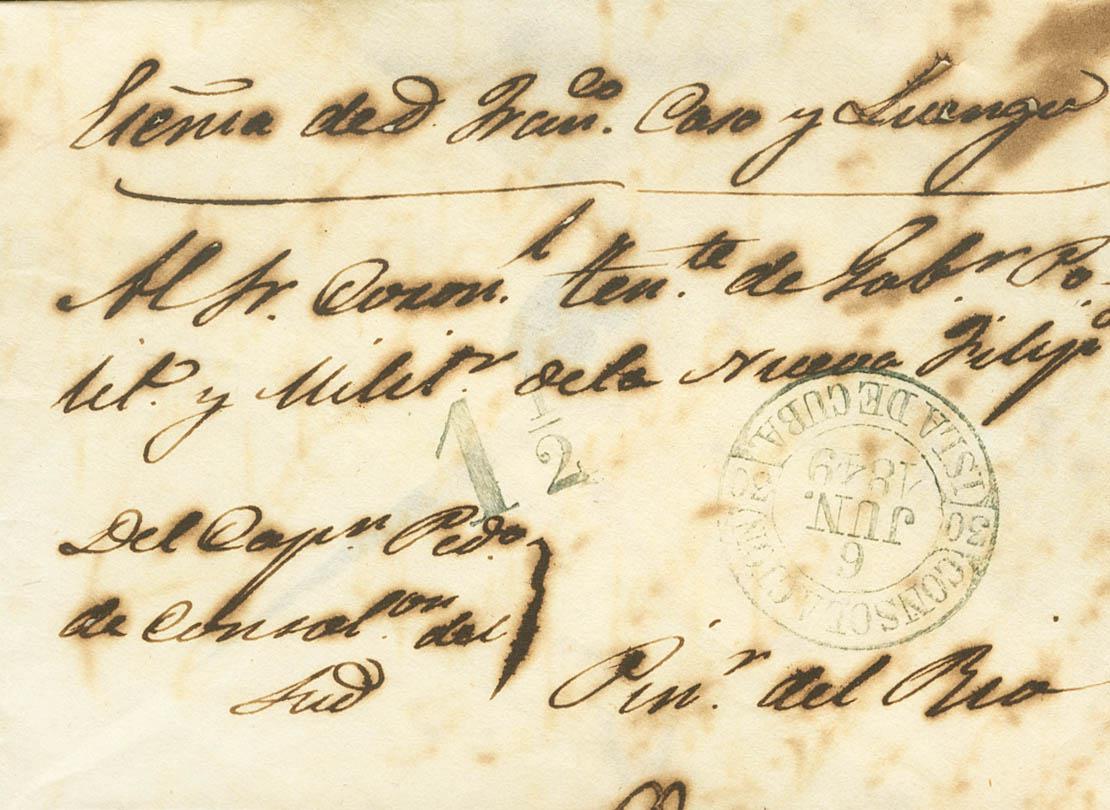 de D. Fran.co Caso y Luengo
Al Sr. Coron.l ten.te de Gob.r Po-
lit.o y Milit.r de la Nueva Filip
1 1/2
ISLA DE CUBA
30 CONSOLACION S.
6
JUN.
1849
Del Cap.n Ped.o
de Consol.on del
Sud
Pin.r del Rio